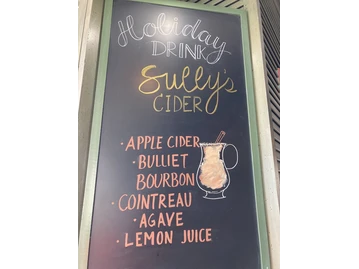 Holiday
DRINK
Sully's
CIDER
· APPLE CIDER
· BULLIET
BOURBON
· COINTREAU
· AGAVE
· LEMON JUICE